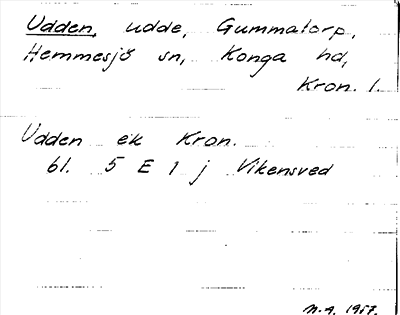 Udden, udde, Gummatorp,
Hemmesjö sn, Konga hd,
Kron. l.
Udden ek Kron.
bl. 5 E 1 j Vikensved
N.A. 1957.